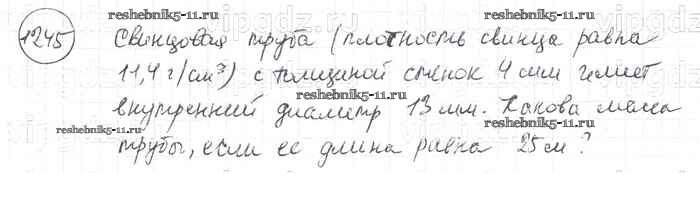 1245
reshebnik5-11.ru reshebnik5-11.ru
Свинцовая труба (плотность свинца равна
11,4 г/см³) с толщиной стенок 4 мм имеет
reshebnik5-11.ru
внутренний диаметр 13 мм. Какова масса
reshebnik5-11.ru reshebnik5-11.ru
трубы, если ее длина равна 25 м?